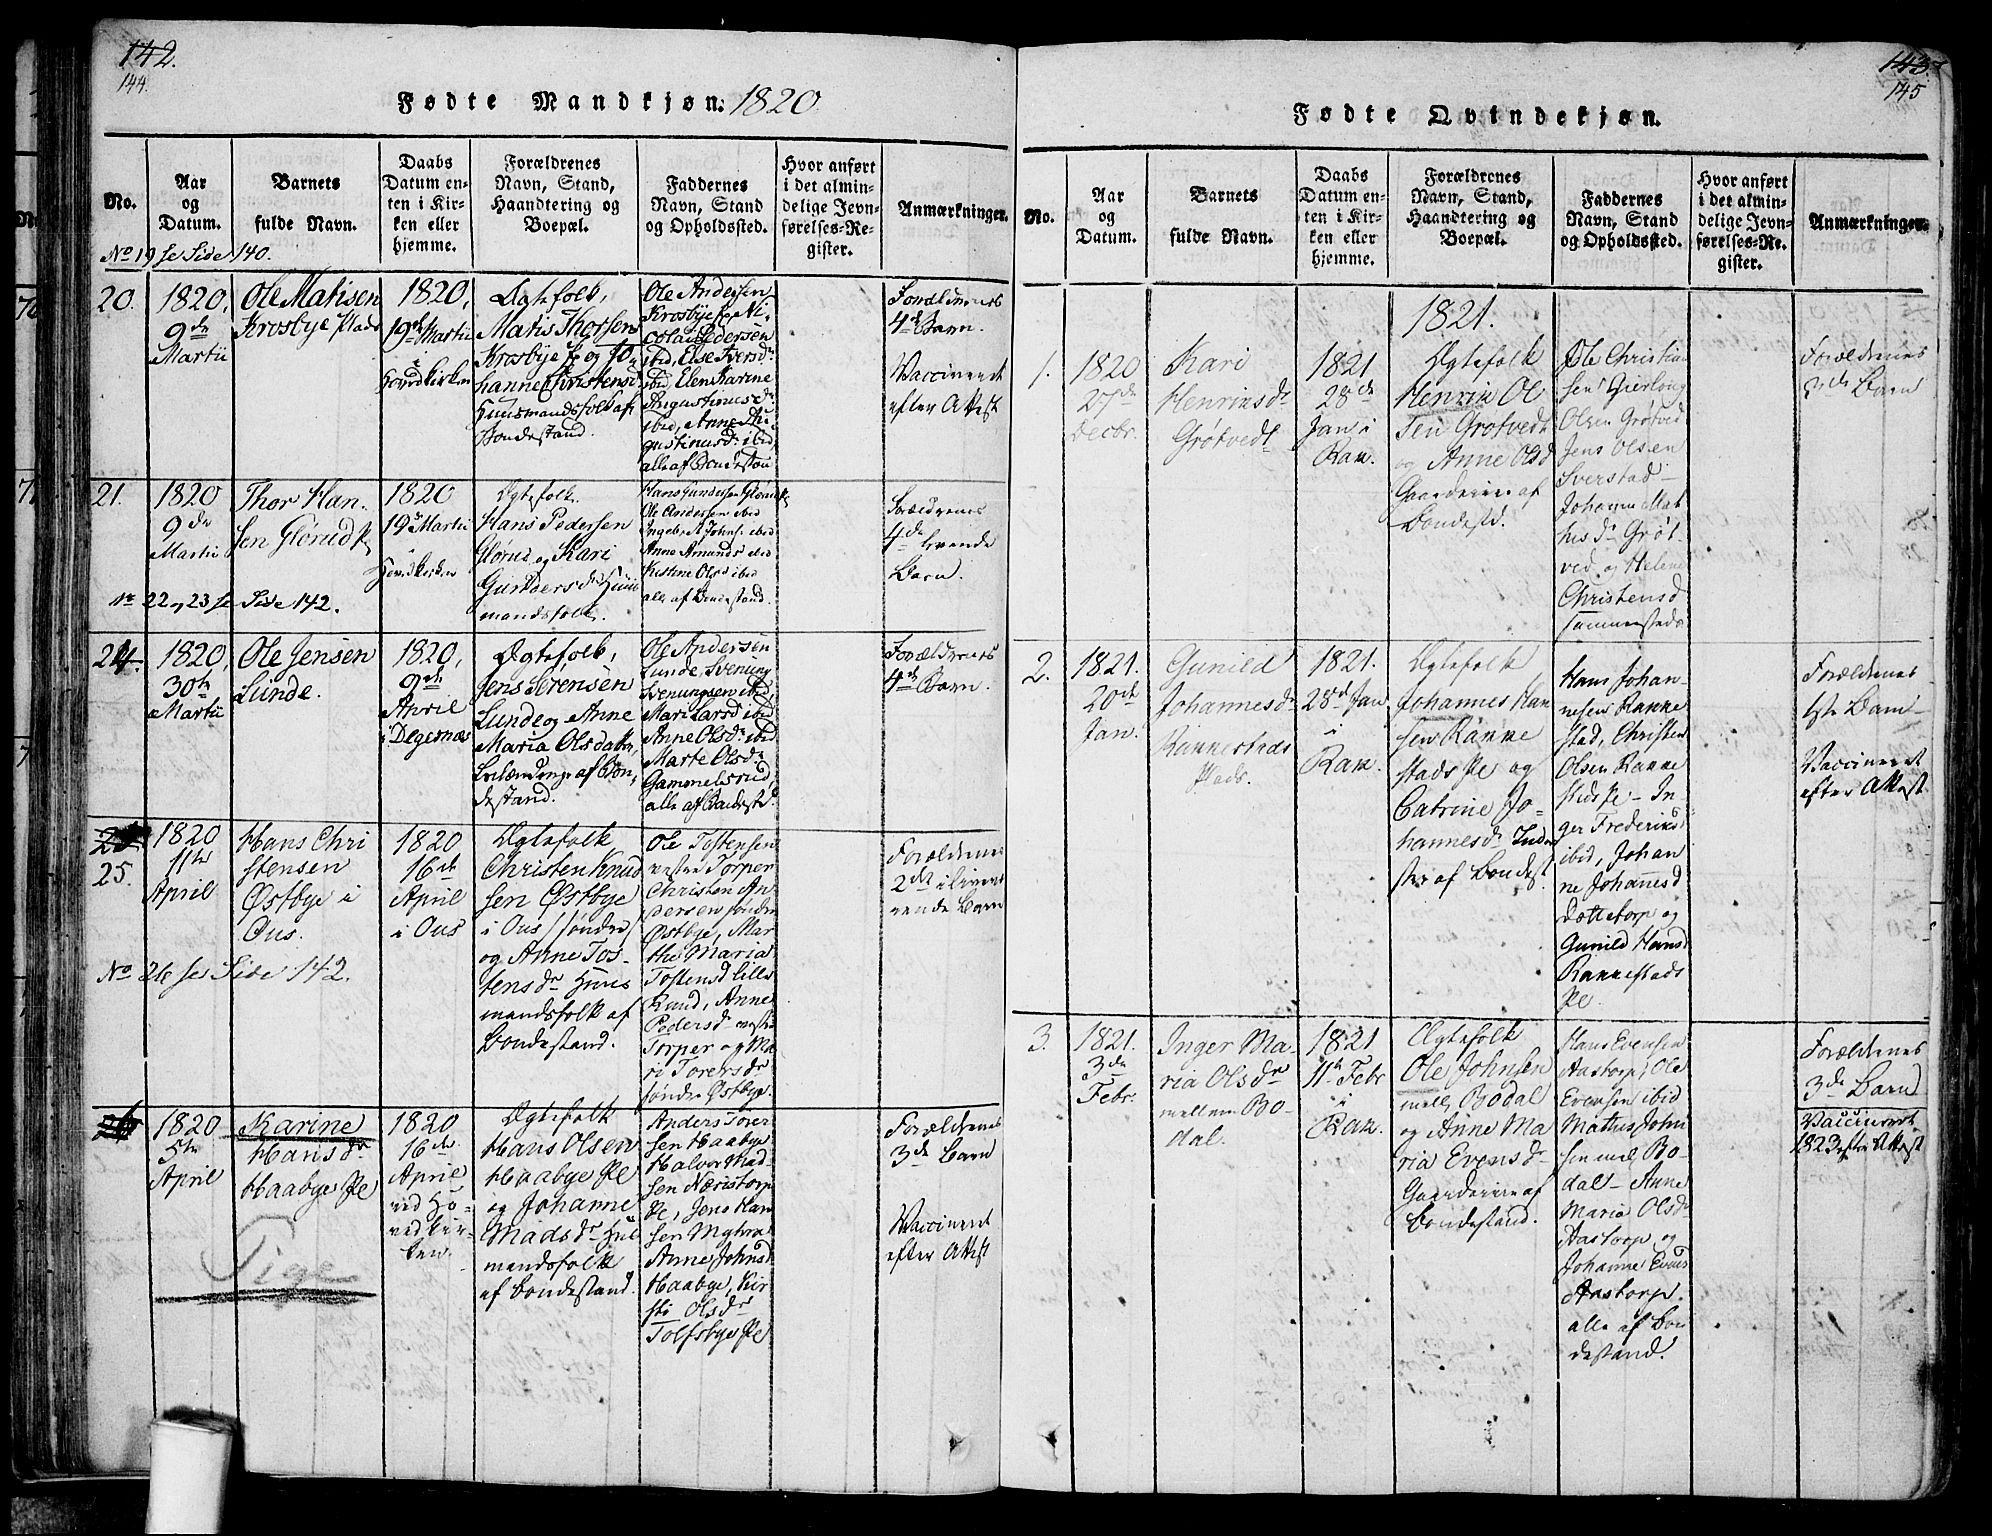 142.
144.
Fødte Mandkjøn. 1820
No.
Aar
og
Datum.
Barnets
fulde Navn.
Daabs
Datum en-
ten i Kir-
ken eller
hjemme.
Forældrenes
Navn, Stand,
Haandtering og
Boepæl.
Faddernes
Navn, Stand
og Opholdssted.
Hvor anført
i det almin-
delige Jevn-
førelses-Re-
gister.
Anmærkninger.
No 19 se Side 140.
20.
1820,
9de
Martii
Ole Matisen
Krosbye Plads
1820,
19de Martii
i
Hovedkirken
Ægtefolk,
Matis Thorsen
Krosbye Pl og Jo-
hanne Christensd
Huusmandsfolk af
Bondestand.
Ole Andersen
Krosbye Pl, Ni-
colai Pedersen
ibid, Else Iversdr
ibid, Elen Karine
Augustinusdr
ibid, Anne Au-
gustinusdr ibid,
alle af Bondestand
Forældrenes
4de Barn.
Vaccineret
efter Attest
21.
1820
9de
Martii
Thor Han-
sen Glørud Pl
1820
19de Martii
i
Hovedkirken
Ægtefolk
Hans Pedersen
Glørud og Kari
Gundersdr Huus
mandsfolk.
Hans Gundersen Glørud Pl
Ole Andersen ibid
Ingebr. A Johns. ibid
Anne Amunds ibid
Kristine Olsd ibid
alle af Bondestand.
Forældrenes
4de levende
Barn.
No 22 og 23 se Side 142.
24.
1820,
30te
Martii
Ole Jensen
Lunde.
1820,
9de
April
i Degernæs
Ægtefolk,
Jens Sørensen
Lunde og Anne
Maria Olsdatter
Leilændinge af Bon-
destand.
Ole Andersen
Lunde, Svenung
Svenungsen ibid,
Mari Larsd ibid
Anne Olsdr ibid
Marte Olsdr
Gammelsrud,
alle af Bondestd.
Forældrenes
4de Barn.
25.
1820
11te
April
Hans Chri
stensen
Østbye i
Ous.
1820
16de
April
i Ous
Ægtefolk
Christen Knud
sen Østbye
i Ous /søndre/
og Anne Tos-
tensdr Huus
mandsfolk af
Bondestand.
Ole Tostensen
vestre Torper
Christen An
dersen søndre
Østbye, Mar
the Maria
Tostensd lille
Rund, Anne
Pedersdr vestre
Torper og Ma
ri Torersdr
søndre Østbye.
Forældrenes
2det i live væ
rende Barn
No 26 se Side 142.
26
1820
5te
April
Karine
Hansdr
Haabye Pl
Pige
1820
16de
April
ved Ho-
vedkir-
ken.
Ægtefolk
Hans Olsen
Haabye Pl
og Johanne
Madsdr Huus
mandsfolk
af Bondestand.
Anders Torer
sen Haabye
Halvor Mad
sen Næristorp
Pl, Jens Han
sen
Anne Johnsd
Haabye, Kir
sti Olsdr
Tolfsbye Pl
Forældrenes
3de Barn
Vaccineret
efter Attest
143.
145
Fødte Qvindekjøn.
No.
Aar
og
Datum.
Barnets
fulde Navn.
Daabs
Datum en-
ten i Kir-
ken eller
hjemme.
Forældrenes
Navn, Stand,
Haandtering og
Boepæl.
Faddernes
Navn, Stand
og Opholdssted.
Hvor anført
i det almin-
delige Jevn-
førelses-Re-
gister.
Anmærkninger.
1821.
1.
1820
27de
Decbr.
Kari
Henriksdr
Grøtvedt
1821
28de
Jan i
Rak.
Ægtefolk
Henrik Ol
sen Grøtvedt
og Anne Olsd
Gaardeiere af
Bondestd.
Ole Christian
sen Gierlaug
Olsen Grøtved
Jens Olsen
Sverstad
Johanne Mat
hisdr Grøt-
ved og Helene
Christensd
sammesteds
Forældrenes
2de Barn
2.
1821.
20de
Jan.
Gunild
Johannesdr
Rakkestads
Plads.
1821.
28de Jan
i
Rak.
Ægtefolk
Johannes Han
sen Rakke
stads Pl og
Catrine Jo-
hannesdr Inder
ster af Bondest.
Hans Johan-
nesen Rakke
stad, Christen
Olsen Rakke
stads Pl - In-
ger Frederiks
ibid, Johan
ne Johannesd
Dottetorp og
Gunild Hansd
Rakkestads
Pl.
Forældrenes
1ste Barn
Vaccineret
efter Attest
3.
1821.
3de
Febr.
Inger Ma-
ria Olsdr
mellem Bo-
dal.
1821
11te Febr
i
Rak.
Ægtefolk
Ole Johnsen
mell. Bodal
og Anne Ma
ria Evensdr
Gaardeiere af
Bondestand.
Hans Evensen
Aastorp, Ole
Evensen ibid
Mathis John
sen mel. Bo-
dal - Anne
Maria Olsdr
Aastorp og
Johanne Evens
Aastorp.
alle af Bon
destand.
Forældrenes
3de Barn
Vaccineret
1823 efter Attest